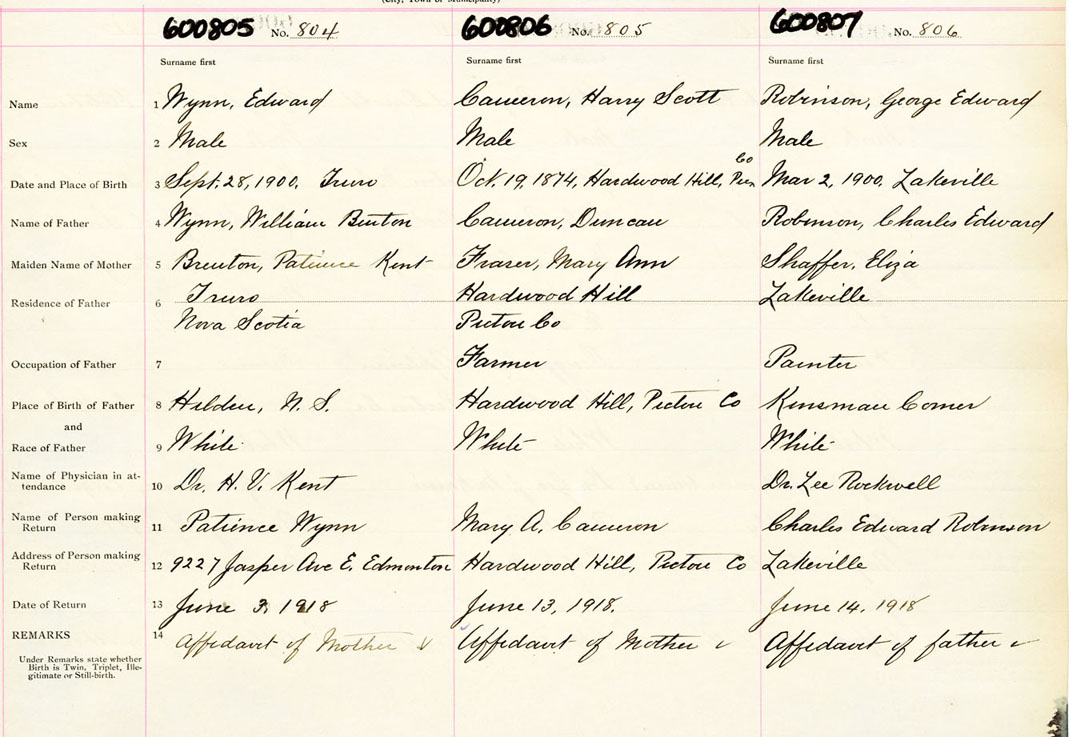 (City, Town or Municipality)
600805 No. 804 600806 No. 805 600807 No. 806
Surname first Surname first Surname first
Name 1 Wynn, Edward Cameron, Harry Scott Robinson, George Edward
Sex 2 Male Male Male
Co
Date and Place of Birth 3 Sept. 28, 1900, Truro Oct. 19, 1874, Hardwood Hill, Mar 2, 1900, Lakeville
Name of Father 4 Wynn, William Burton Cameron, Duncan Robinson, Charles Edward
Maiden Name of Mother 5 Brenton, Patience Kent Fraser, Mary Ann Shaffer, Eliza
Residence of Father 6 Truro Hardwood Hill Lakeville
Nova Scotia Pictou Co
Occupation of Father 7 Farmer Painter
Place of Birth of Father 8 Hilden, N. S. Hardwood Hill, Pictou Co Kinsman Corner
and
Race of Father 9 White White White
Name of Physician in at-
tendance 10 Dr. H. V. Kent Dr. Lee Rockwell
Name of Person making
Return 11 Patience Wynn Mary A. Cameron Charles Edward Robinson
Address of Person making
Return 12 9227 Jasper Ave E. Edmonton Hardwood Hill, Pictou Co Lakeville
Date of Return 13 June 3, 1918 June 13, 1918. June 14, 1918
REMARKS 14 Affidavit of Mother Affidavit of Mother Affidavit of father
Under Remarks state whether
Birth is Twin, Triplet, Ille-
gitimate or Still-birth.